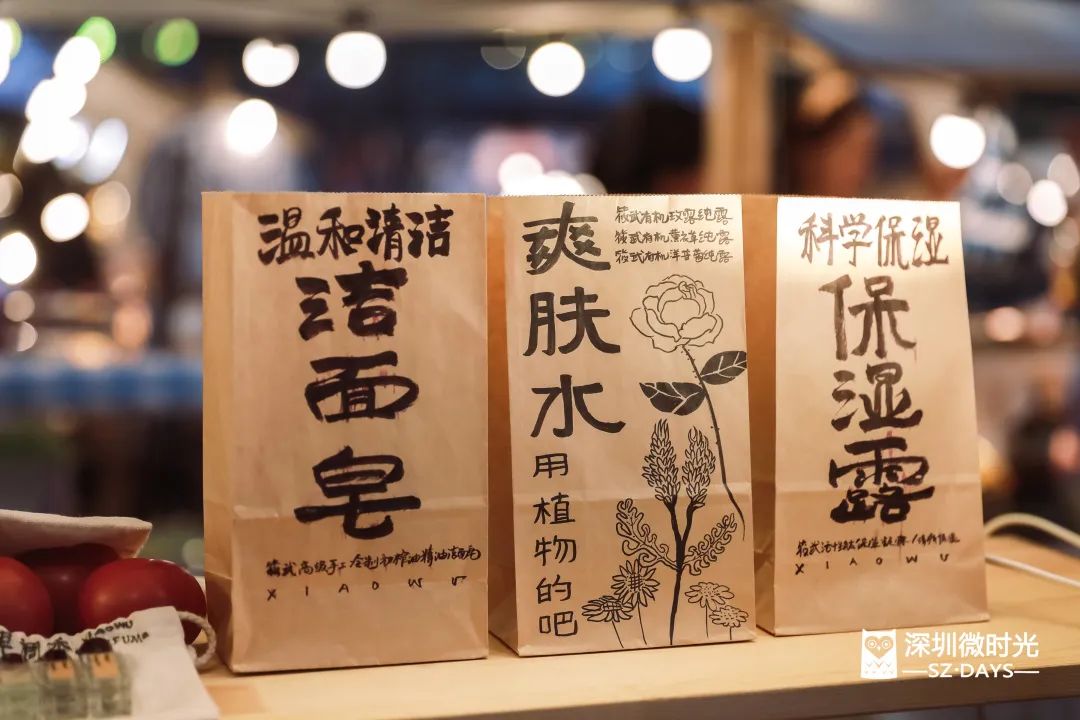 温和清洁
洁面皂
筱武高级手工冷制初榨油精油洁面皂
XIAOWU
爽肤水
用植物的吧
筱武有机玫瑰纯露
筱武有机薰衣草纯露
筱武有机洋甘菊纯露
科学保湿
保湿露
XIAOWU
XIAOWU
深圳微时光
SZ·DAYS